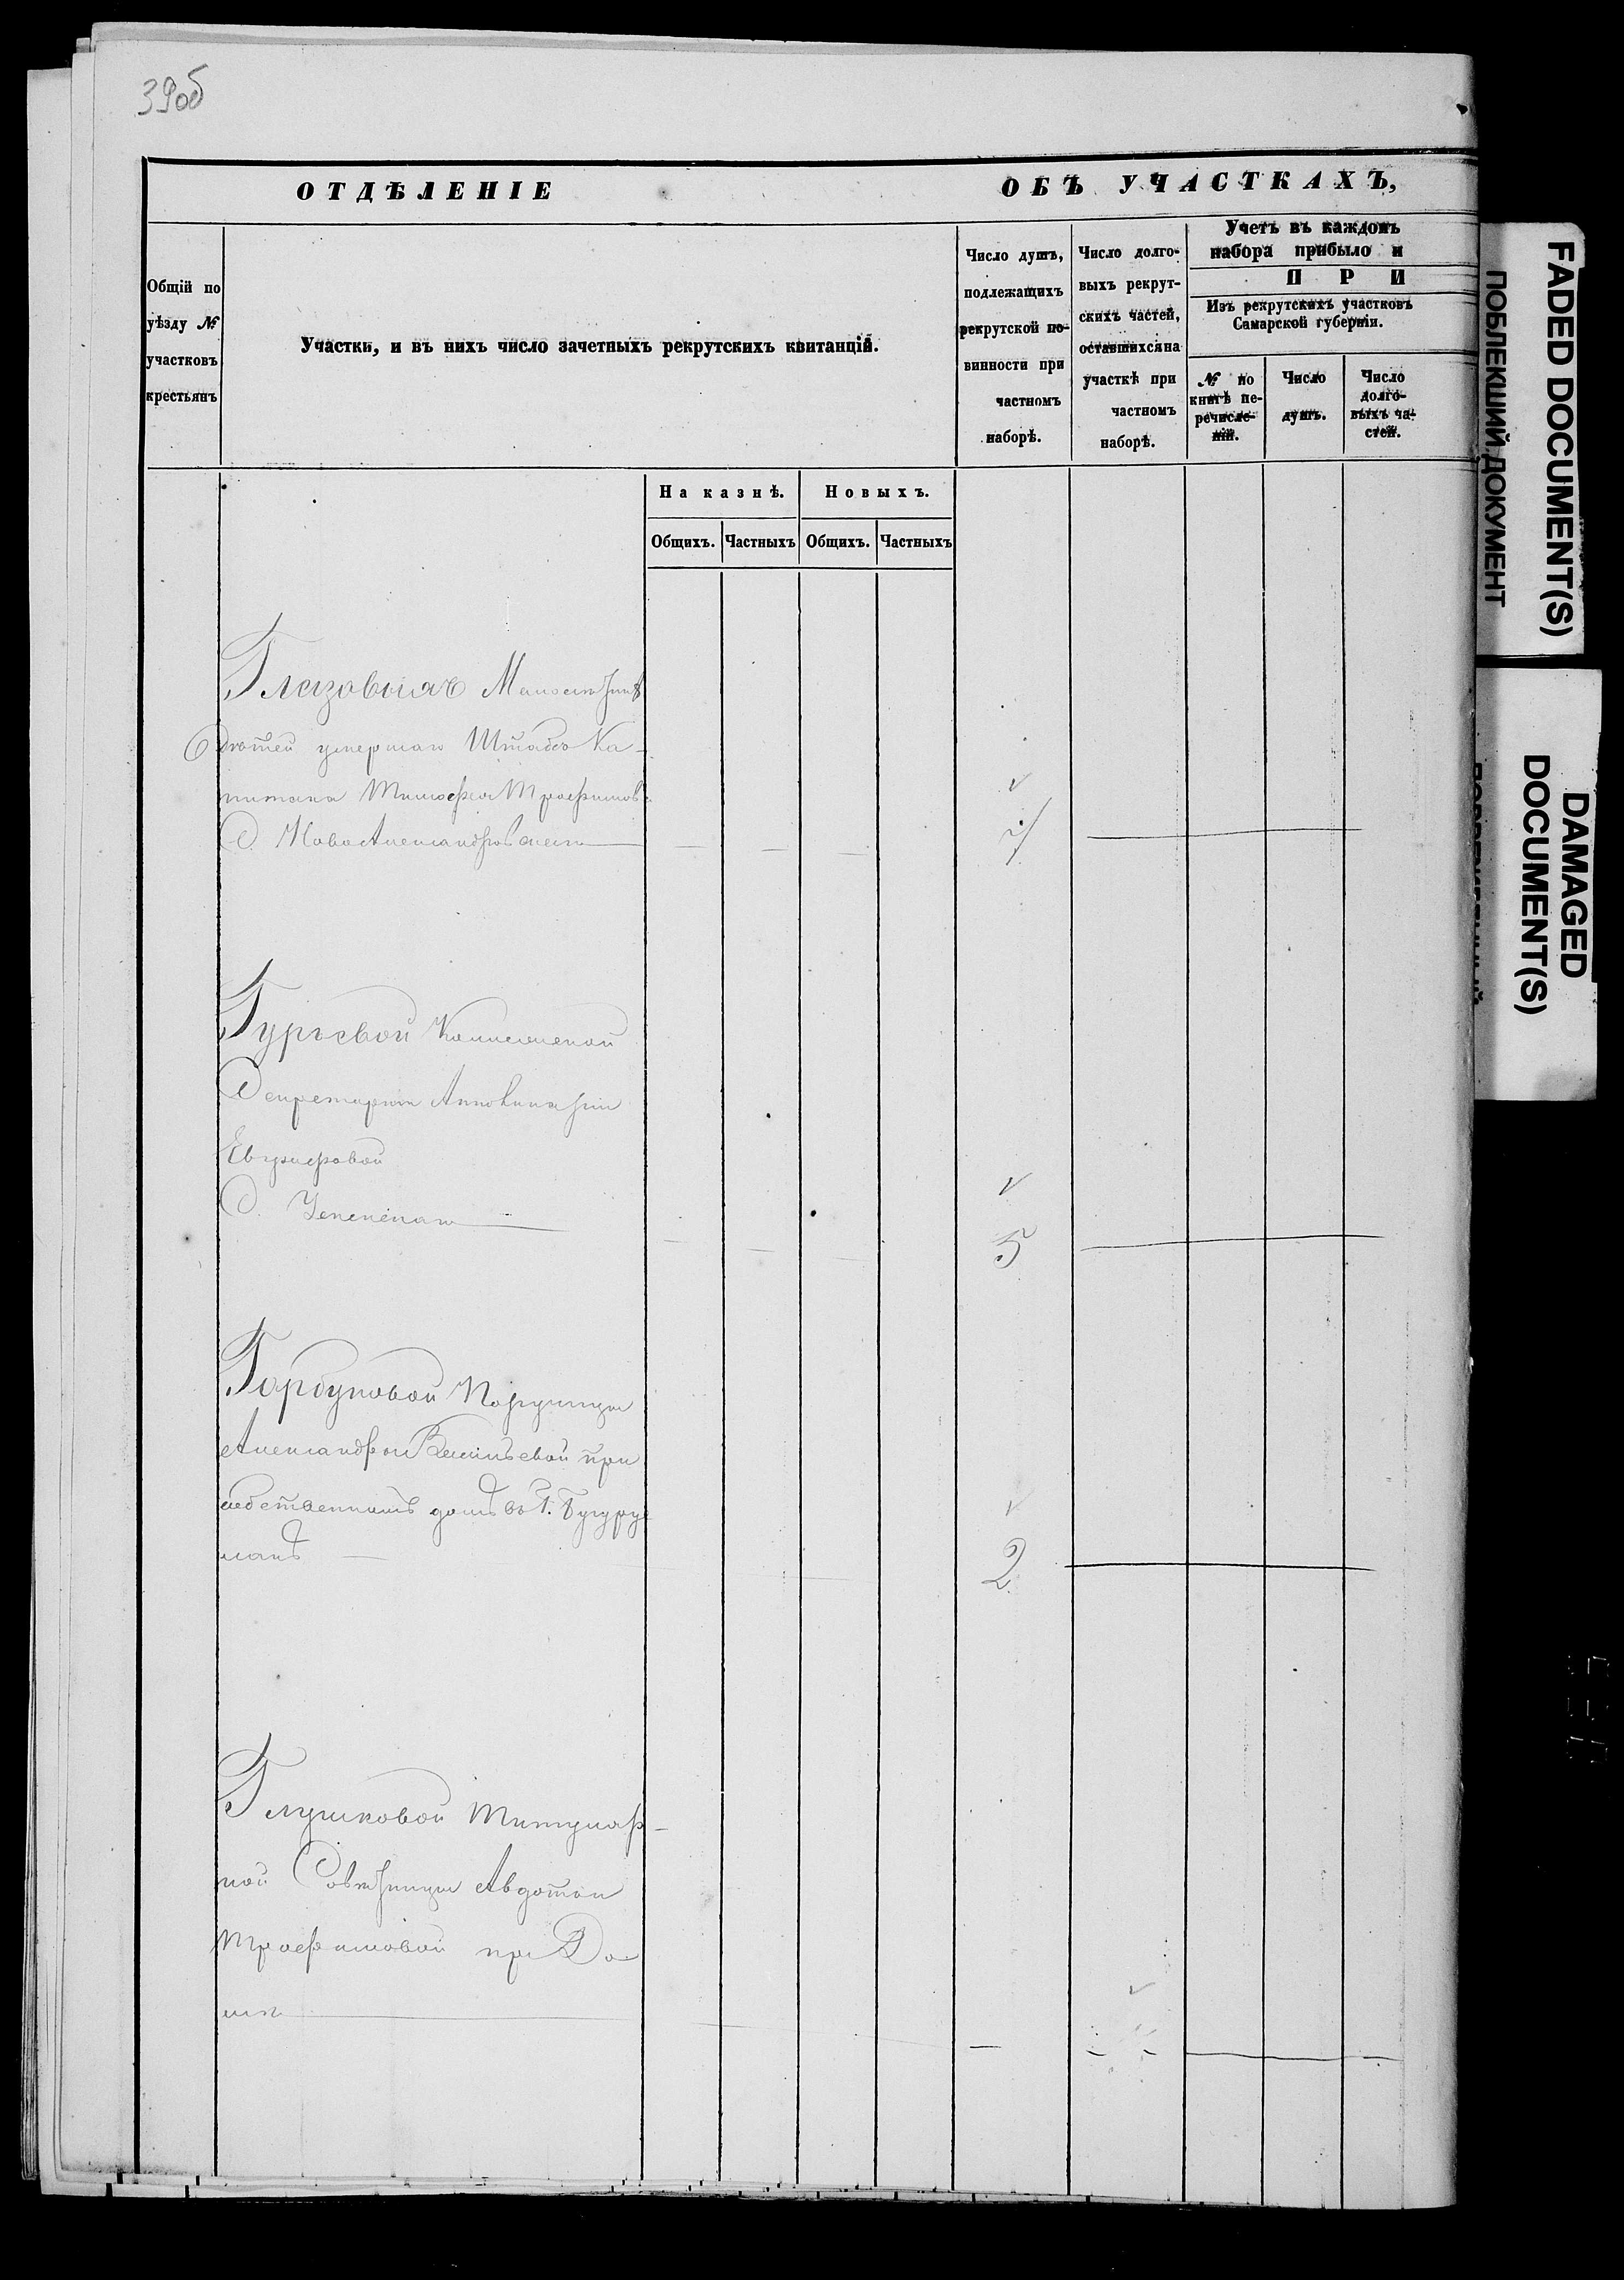 39об
ОТДѢЛЕНІЕ ОБЪ УЧАСТКАХЪ,
Общій по
уѣзду №
участковъ
крестьянъ
Участки, и въ нихъ число зачетныхъ рекрутскихъ квитанцій.
Число душъ,
подлежащихъ
рекрутской по-
винности при
частномъ
наборѣ.
Число долго-
выхъ рекрут-
скихъ частей,
оставшихся на
участкѣ при
частномъ
наборѣ.
Учетъ въ каждомъ
набора прибыло и
ПРИ
Изъ рекрутскихъ участковъ
Самарской губерніи.
№ по
книгѣ пе-
речисле-
ній.
Число
душъ.
Число
долго-
выхъ ча-
стей.
На казнѣ.
Новыхъ.
Общихъ.
Частныхъ
Общихъ.
Частныхъ
Глазовыхъ
дѣтей умершаго Штабсъ Ка-
питана Тимофея Трофимов
С. НовоАлександровская
Гурьевой Коллежской
Секретарши
С.
5
Горбуновой Поручицы
Александры Васильевой при
собственномъ домѣ въ Г. Бугуру
сланѣ
2
Глушковой Титуляр-
ной Совѣтницы Авдотьи
Трофимовой при До-
мѣ
FADED DOCUMENT(S)
ПОБЛЕКШИЙ ДОКУМЕНТ
DAMAGED
DOCUMENT(S)